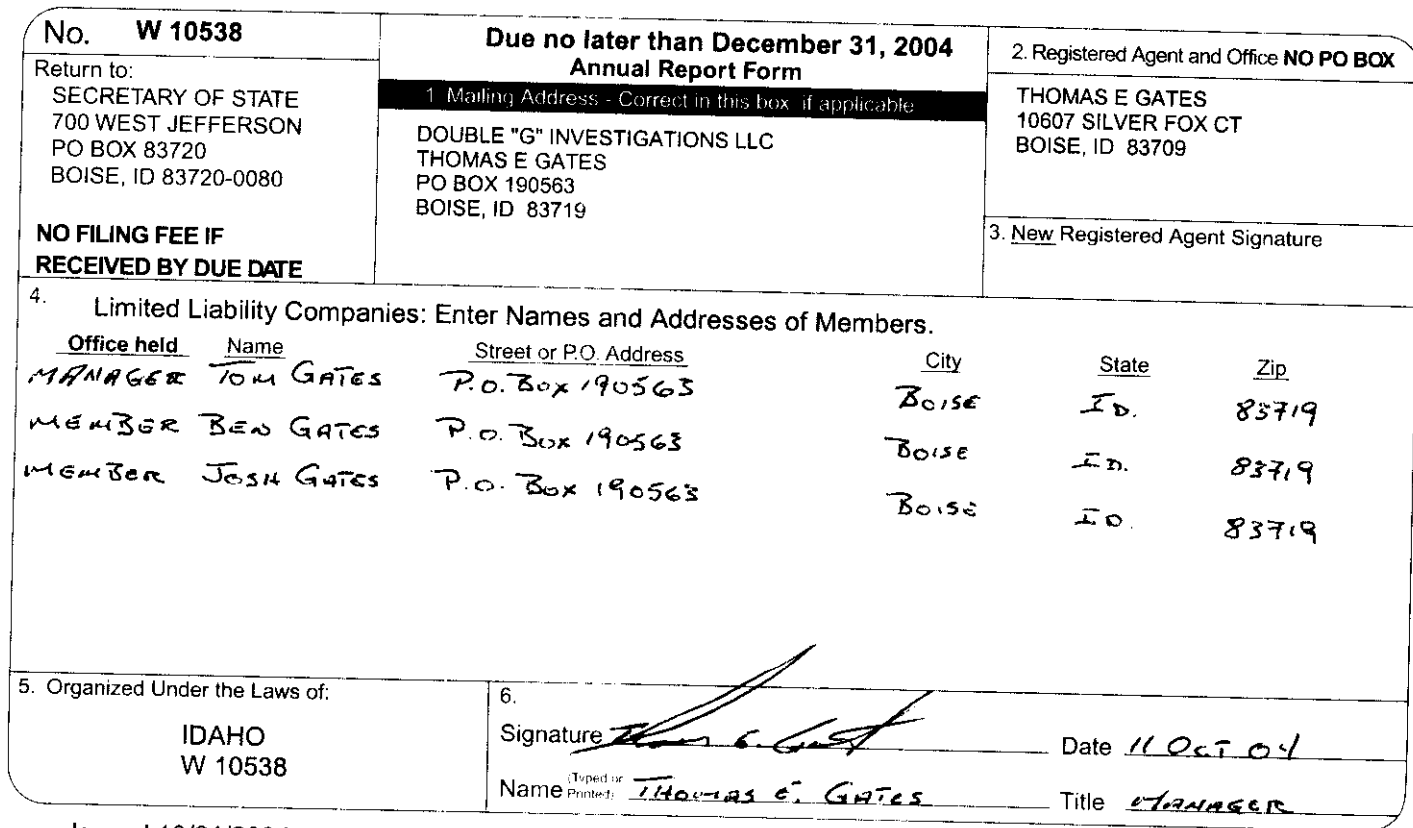 No. W 10538
Return to:
SECRETARY OF STATE
700 WEST JEFFERSON
PO BOX 83720
BOISE, ID 83720-0080
NO FILING FEE IF
RECEIVED BY DUE DATE
Due no later than December 31, 2004
Annual Report Form
1. Mailing Address - Correct in this box if applicable
DOUBLE "G" INVESTIGATIONS LLC
THOMAS E GATES
PO BOX 190563
BOISE, ID 83719
2. Registered Agent and Office NO PO BOX
THOMAS E GATES
10607 SILVER FOX CT
BOISE, ID 83709
3. New Registered Agent Signature
4. Limited Liability Companies: Enter Names and Addresses of Members.
Office held Name Street or P.O. Address City State Zip
MANAGER TOM GATES P.O. BOX 190563 BOISE ID. 83719
MEMBER BEN GATES P.O. BOX 190563 BOISE ID. 83719
MEMBER JOSH GATES P.O. BOX 190563 BOISE ID. 83719
5. Organized Under the Laws of:
IDAHO
W 10538
6.
Signature Thomas E. Gates Date 11 OCT 04
Name (Typed or Printed) THOMAS E. GATES Title MANAGER